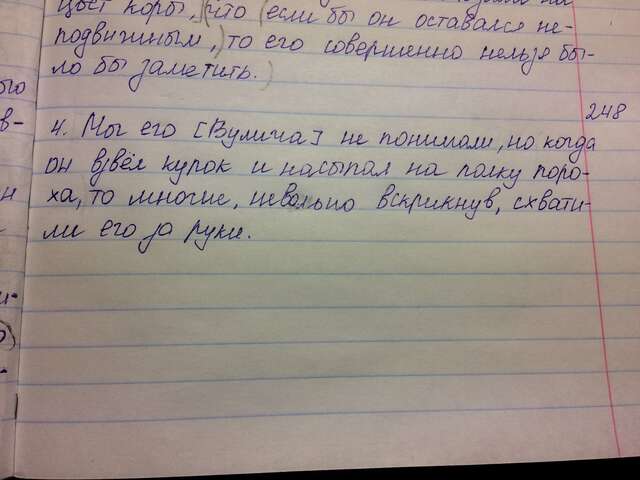 цвет коры, (что (если бы он оставался не-
подвижным,) то его совершенно нельзя бы-
ло бы заметить.)
248
4. Мы его [Вулича] не понимали, но когда
он взвёл курок и насыпал на полку поро-
ха, то многие, невольно вскрикнув, схвати-
ли его за руки.